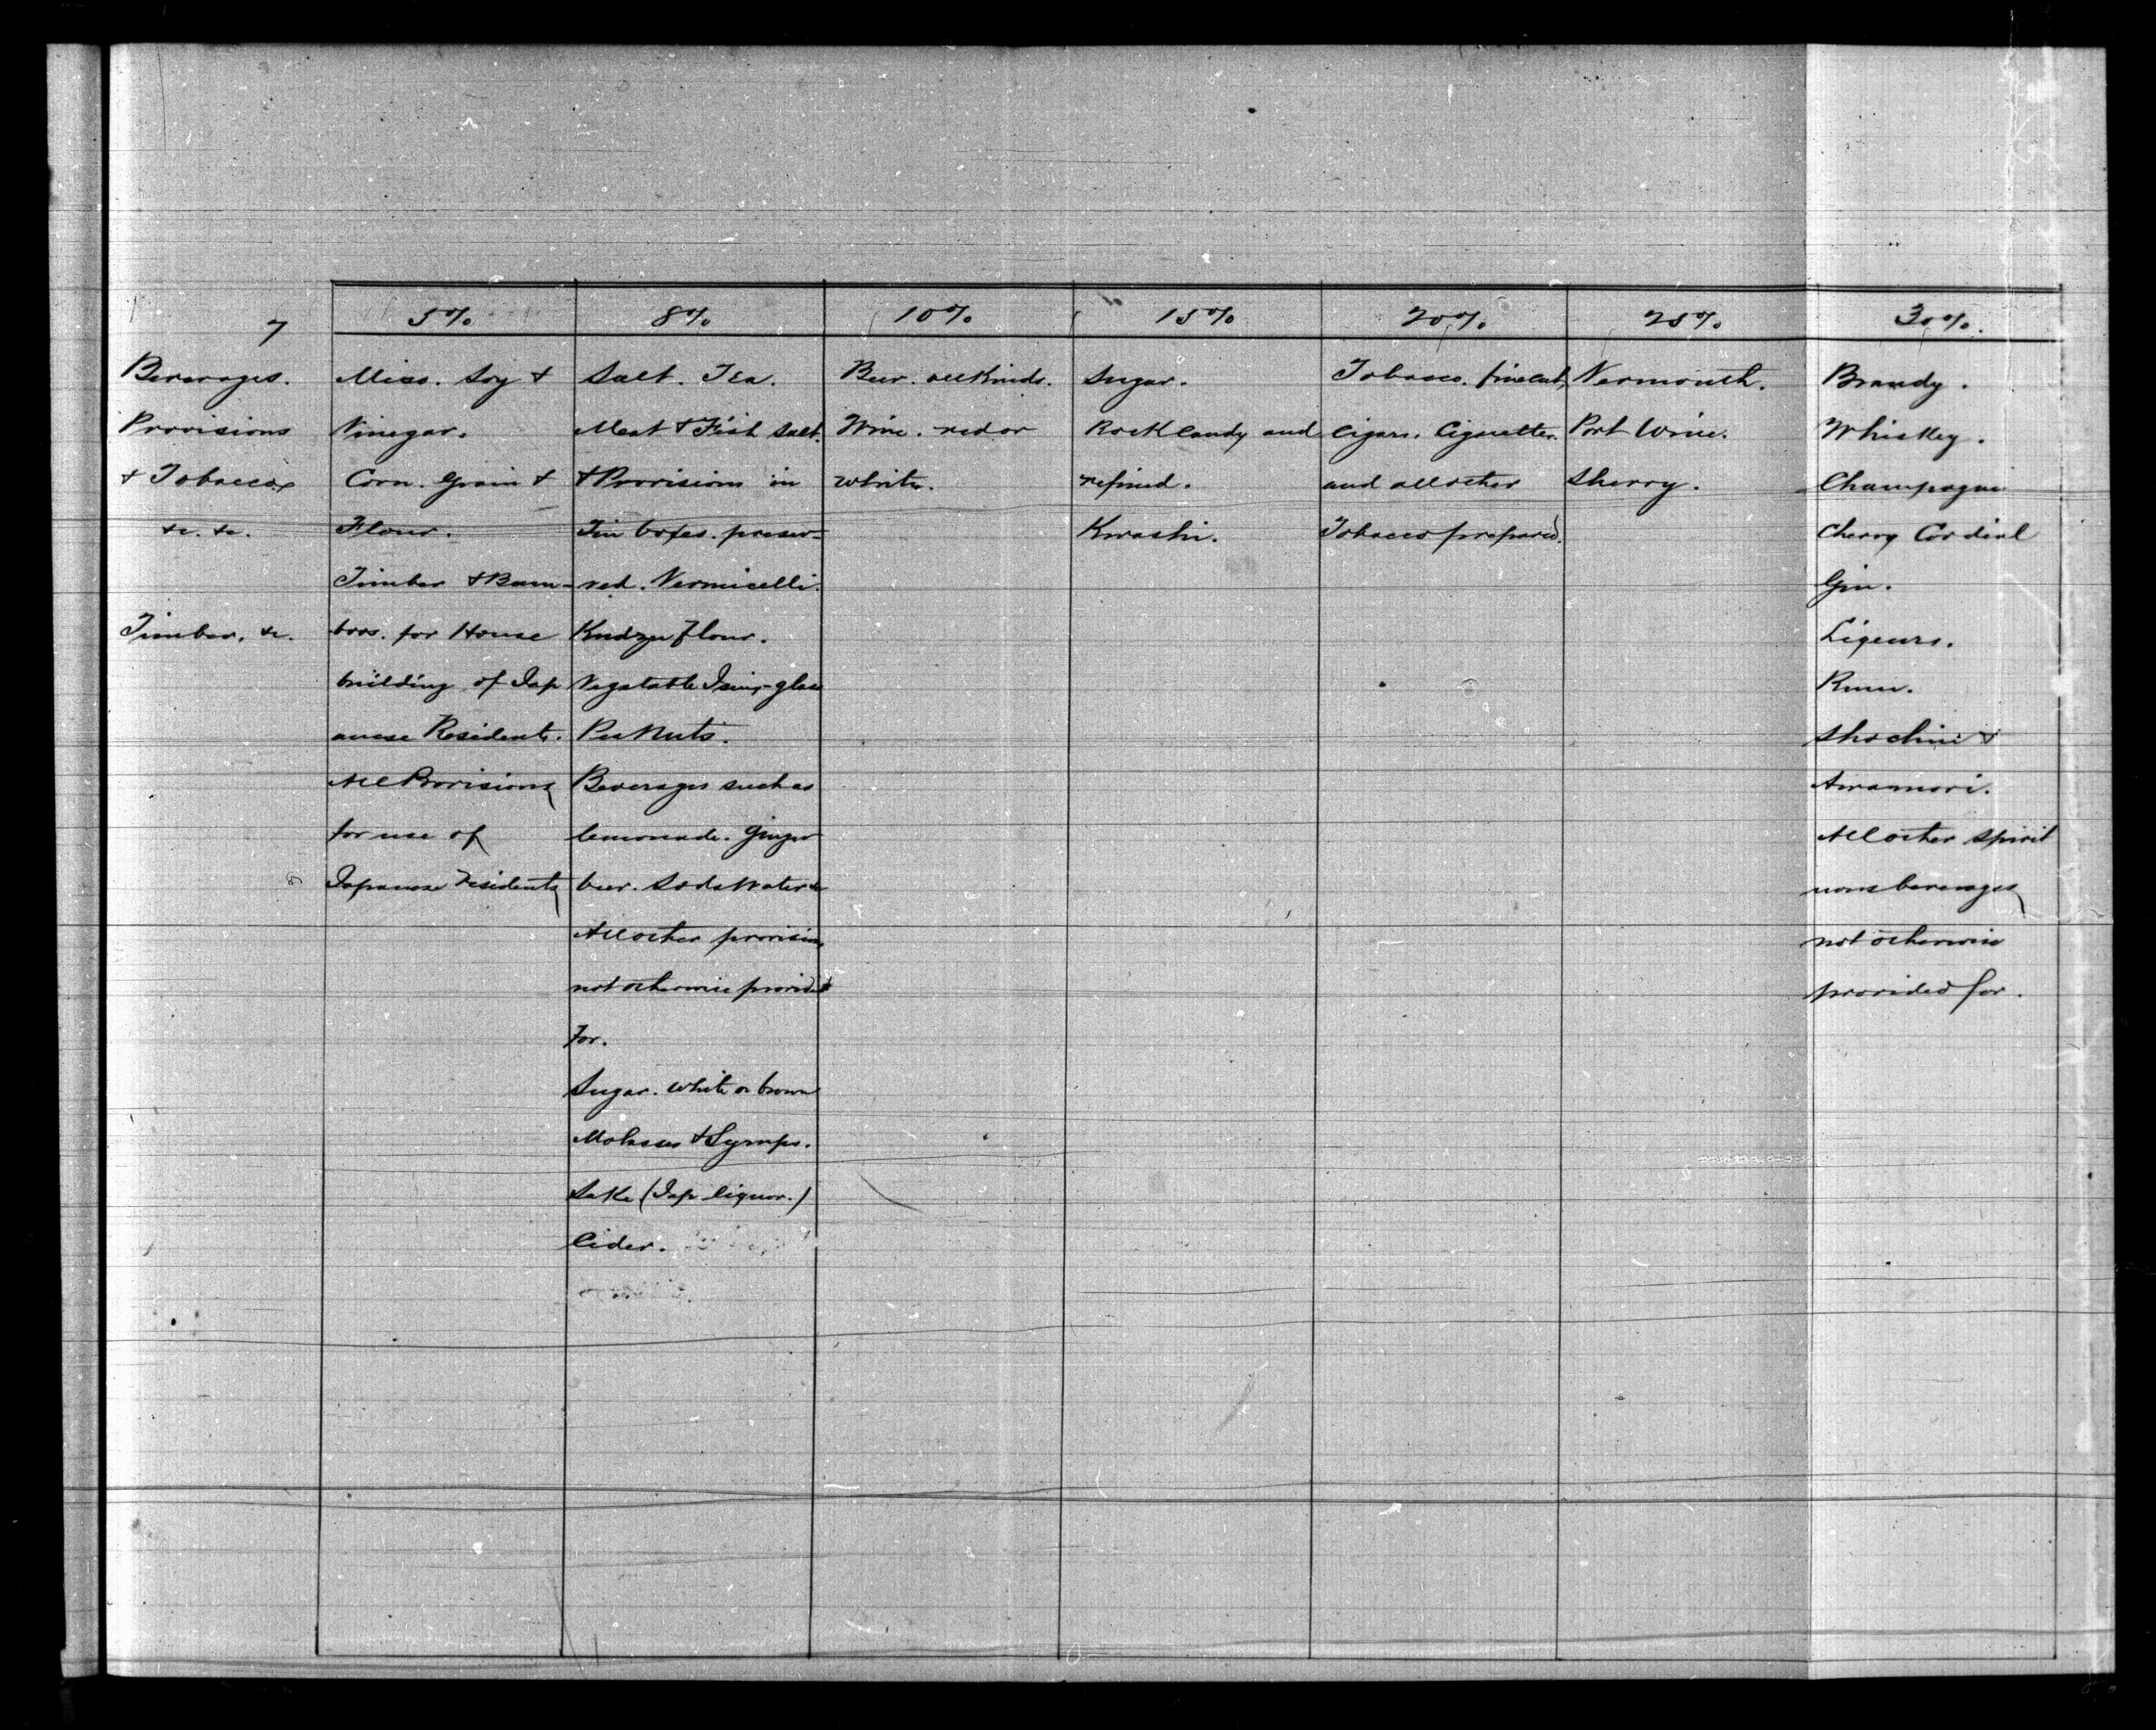 7
5%
8%
10%
15%
20%
25%
30%.
Beverages.
Provisions
& Tobaccos
&c. &c.
Timber. &c.
Miso. Soy &
Vinegar.
Corn. Grain &
Flour.
Timber & Bam-
boos. for House
building of Jap
anese Residents.
All Provisions
for use of
Japanese residents
Salt. Tea.
Meat & Fish salt.
& Provisions in
Tin boxes. preser-
ved. Vermicelli.
Kudzu flour.
Vegatable Ising-glass
Pea Nuts.
Beverages such as
lemonade. ginger
beer. Soda Water &c
All other provisions
not otherwise provided
for.
Sugar. White or brown
Molasses & Syrups.
Sake (Jap liquor.)
Cider.
Beer. all Kinds.
Wine. red or
white.
Sugar.
Rock Candy and
refined.
Kwashi.
Tobacco. fine cut,
Cigars. Cigarettes.
and all other
Tobacco prepared.
Vermouth.
Port Wine.
Sherry.
Brandy.
Whiskey.
Champagne
Cherry Cordial
Gin.
Liqeurs.
Rum.
Shochiu &
Awamori.
All other spirit
uous beverages
not otherwise
provided for.